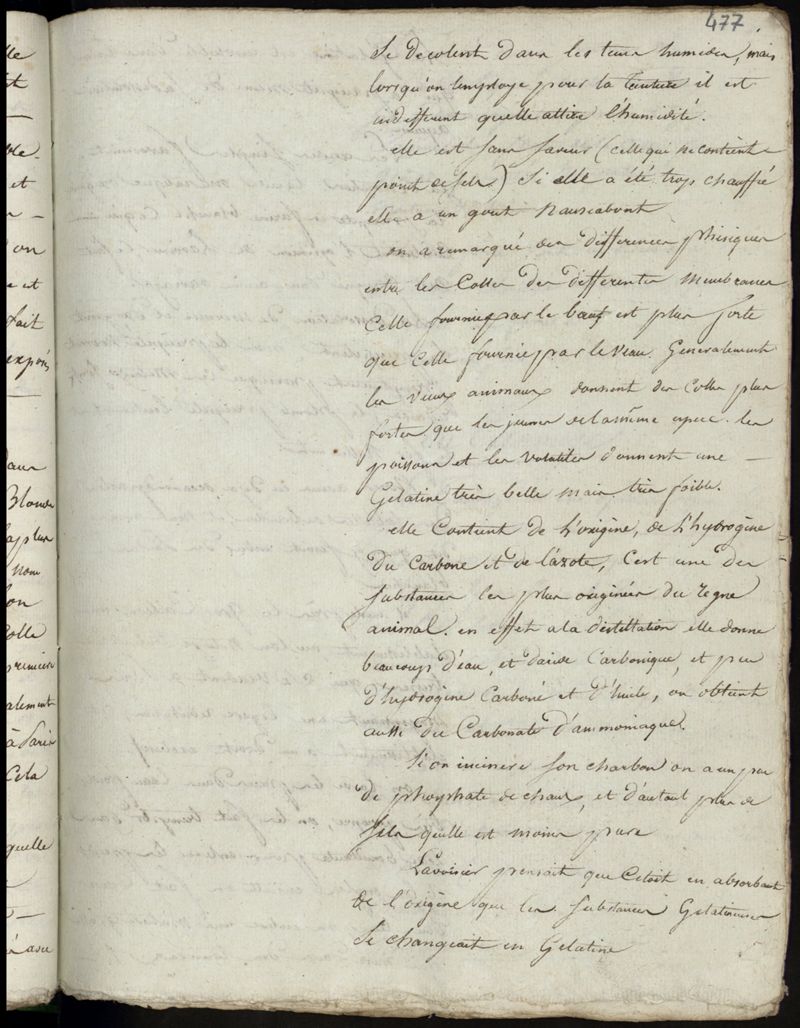 477
lle
it
—
ble.
et
n —
d'on
e et
fait
exposé
—
daux
Blonde
la plus
non
on
Colle
premiere
alement
à Paris
Cela
quelle
—
à asse
Se decolent dans les tems humides, mais
lorsqu'on l'employe pour la teinture il est
indifferent quelle attire l'humidité.
elle est sans saveur (celle qui ne contient
point de sels) Si elle a été trop chauffée
elle a un gout nauseabont
on a remarqué des differences phisiques
entre les Colles des differentes membranes
Celle fournie par le bœuf est plus forte
que Celle fournie par le veau. Generalement
les vieux animaux donnent des Colles plus
fortes que les jeunes de la même espece. les
poissons et les volatiles donnent une —
Gelatine très belle mais très foible.
elle Contient de l'oxigène, de l'hydrogène
du Carbone et de l'azote, C'est une des
substances les plus oxigénées du regne
animal. en effet a la distillation elle donne
beaucoup d'eau, et d'acide Carbonique, et peu
d'hydrogène Carboné et d'huile, on obtient
aussi du Carbonate d'ammoniaque.
Si on incinere son charbon on a un peu
de phosphate de chaux, et d'autant plus de
sels qu'elle est moins pure
Lavoisier pensait que C'étoit en absorbant
de l'oxigène que les substances Gelatineuses
se changeait en Gelatine